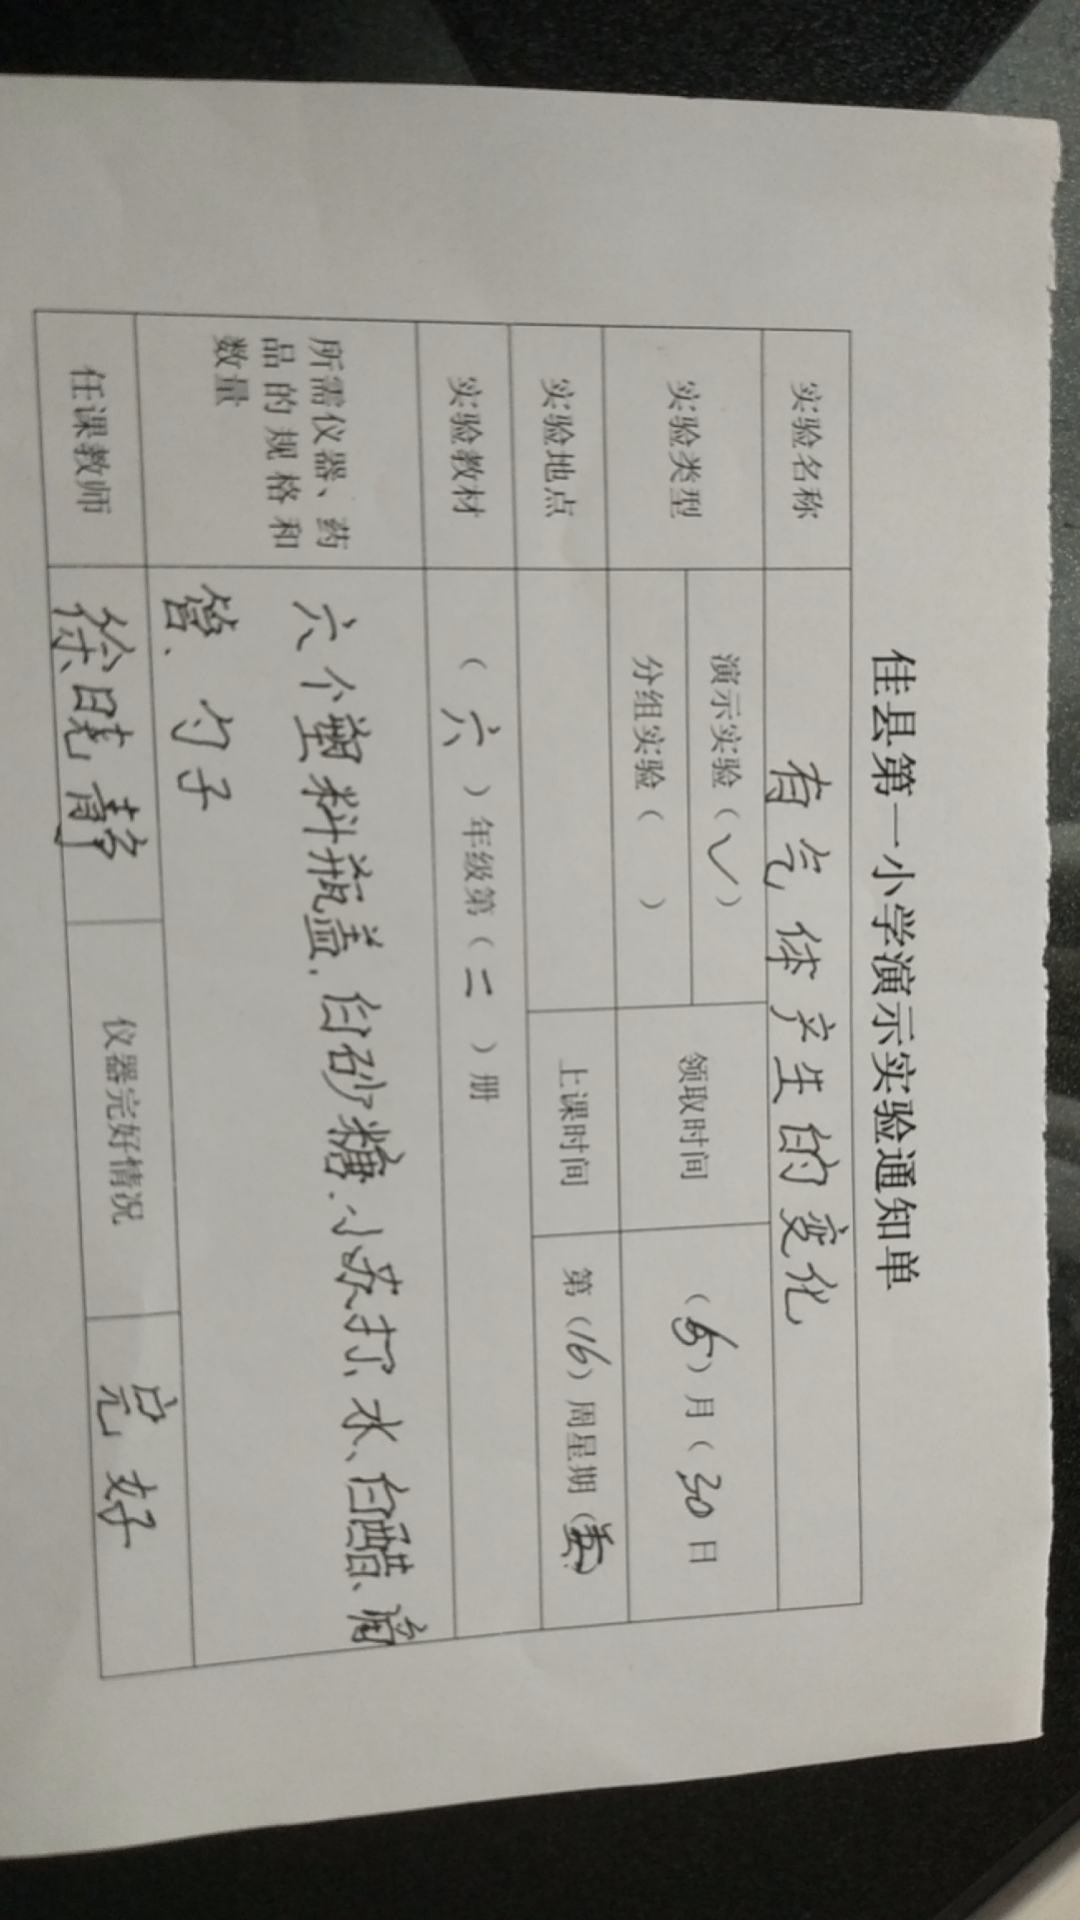 佳县第一小学演示实验通知单
实验名称 有气体产生的变化
实验类型 演示实验（✓） 领取时间 （ ）月（30日
分组实验（ ）
实验地点 上课时间 第（16）周星期（ ）
实验教材 （六）年级第（二）册
所需仪器、药
品的规格和
数量
六个塑料瓶盖、白砂糖、小苏打、水、白醋、滴
管、勺子
任课教师 徐晓静 仪器完好情况 完好